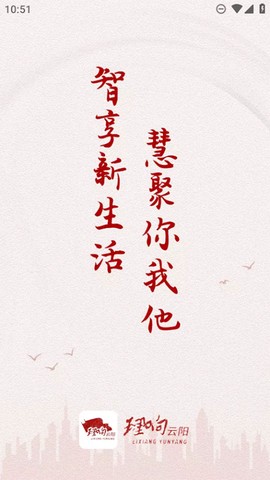 10:51
智享新生活
慧聚你我他
理响云阳
LIXIANG YUNYANG